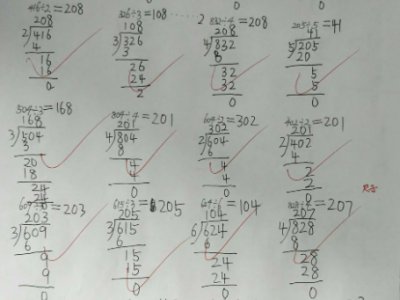 416÷2=208
208
2)416
4
16
16
0
326÷3=108 2
108
3)326
3
26
24
2
832÷4=208
208
4)832
8
32
32
0
205÷5=41
41
5)205
20
5
5
0
504÷3=168
168
3)504
3
20
18
24
24
804÷4=201
201
4)804
8
4
4
0
604÷2=302
302
2)604
6
4
4
0
402÷2=201
201
2)402
4
2
2
0
609÷3=203
203
3)609
6
9
9
0
615÷3=205
205
3)615
6
15
15
0
624÷6=104
104
6)624
6
24
24
0
828÷4=207
207
4)828
8
28
28
0